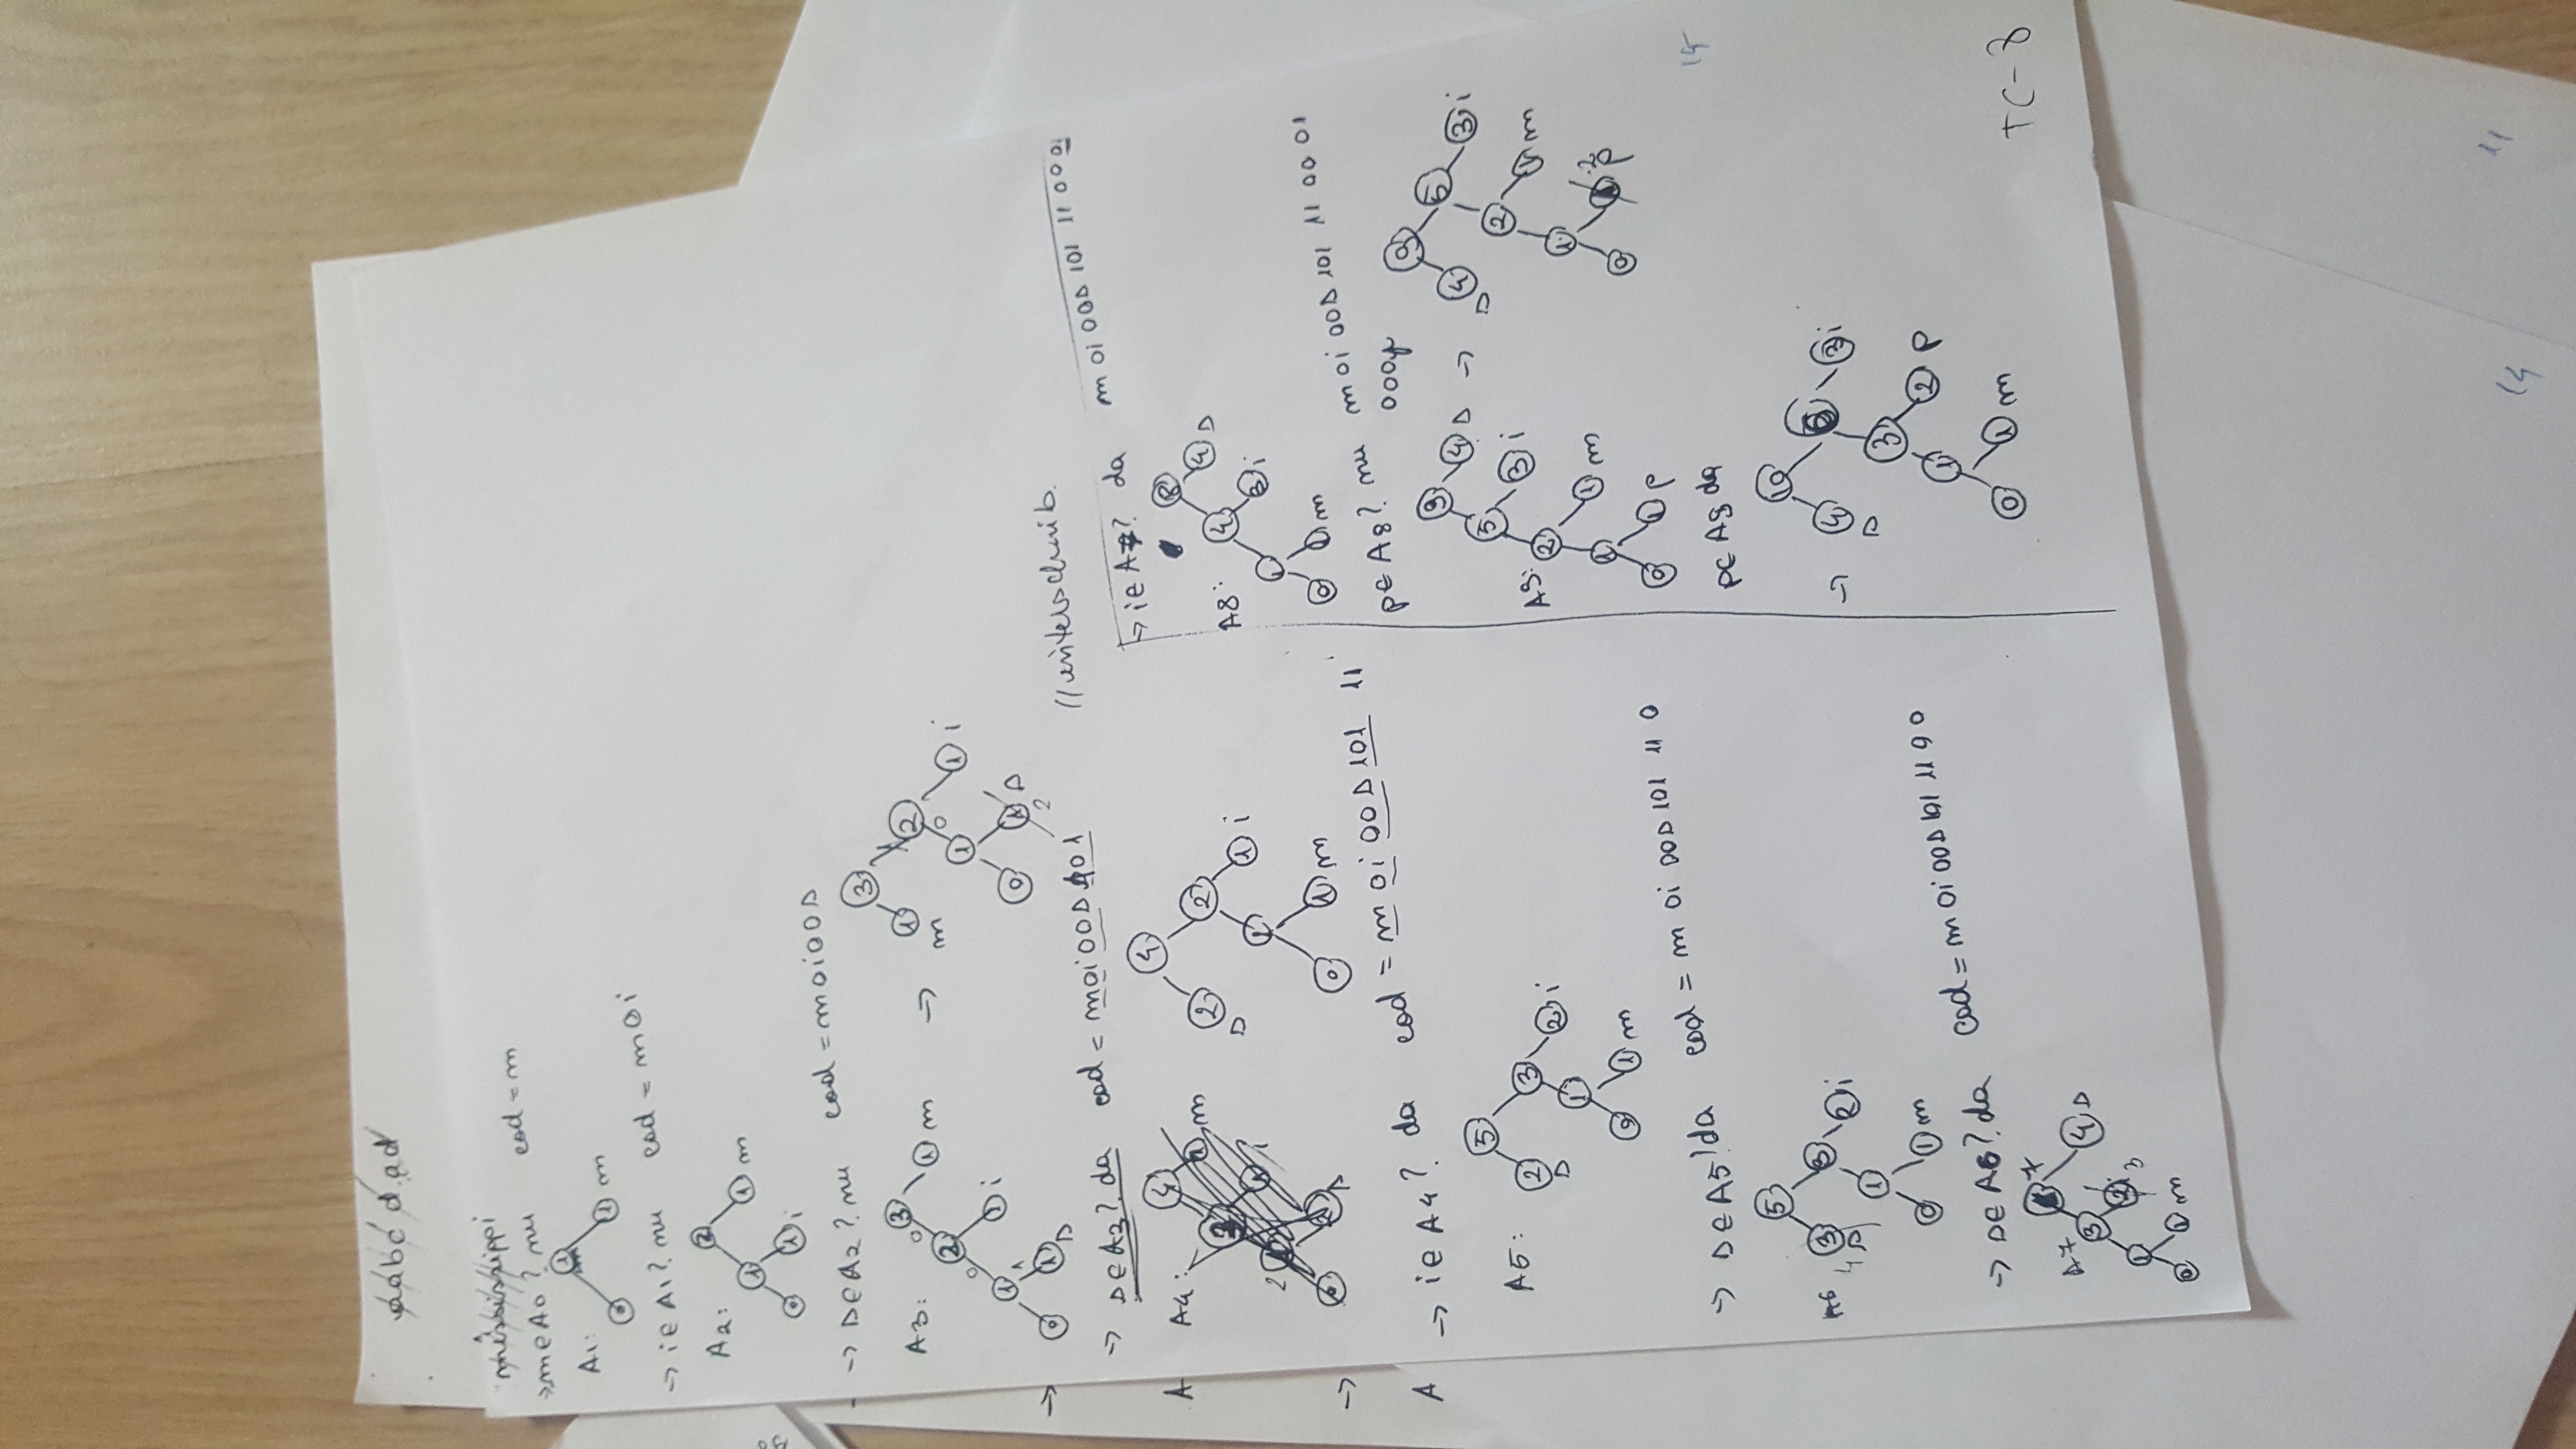 aabcdad
mississippi
→ m∈A0? nu cod = m
A1:
1
0 1 m
→ i∈A1? nu cod = m0i
A2:
2
1 1 m
0 1 i
→ s∈A2? nu cod = m0i00s
A3:
3
0
2 1 m
0
1 1 i
1
0 1 s
→
3
1 1 2
m 0
1 1 i
0 1 s
2
→ s∈A3? da cod = m0i00s101
//interschimb.
A4:
4
2 2
s
1 1 i
0 1 m
→ i∈A4? da cod = m 0i 00s 101 11
A5:
5
2 3
s
1 2 i
0 1 m
→ s∈A5! da cod = m 0i 00s 101 11 0
A6
5
3 3
4 s
1 2 i
0 1 m
→ s∈A6? da cod = m 0i 00s 101 11 0 0
A7
7
3 4 s
1 2 i 3
0 1 m
→ i∈A7? da m 0i 00s 101 11 00 0i
A8:
8
4 4 s
1 3 i
0 1 m
p∈A8? nu m 0i 00s 101 11 00 01
000p
A9:
9
5 4 s
2 3 i
1 1 m
0 1 p
→
9
4 5
s
2 3 i
1 1 m
0 2
p
p∈A9 da
→
10
4 6
s
3 3 i
1 2 p
0 1 m
TC-8
15
14
11
A
→
A
→